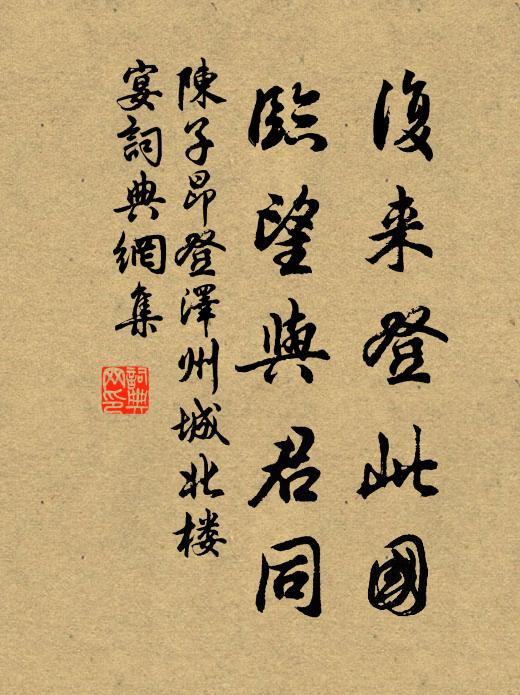 復来登此國
臨望與君同
陳子昂登澤州城北楼
宴詞典網集
詞典
网印